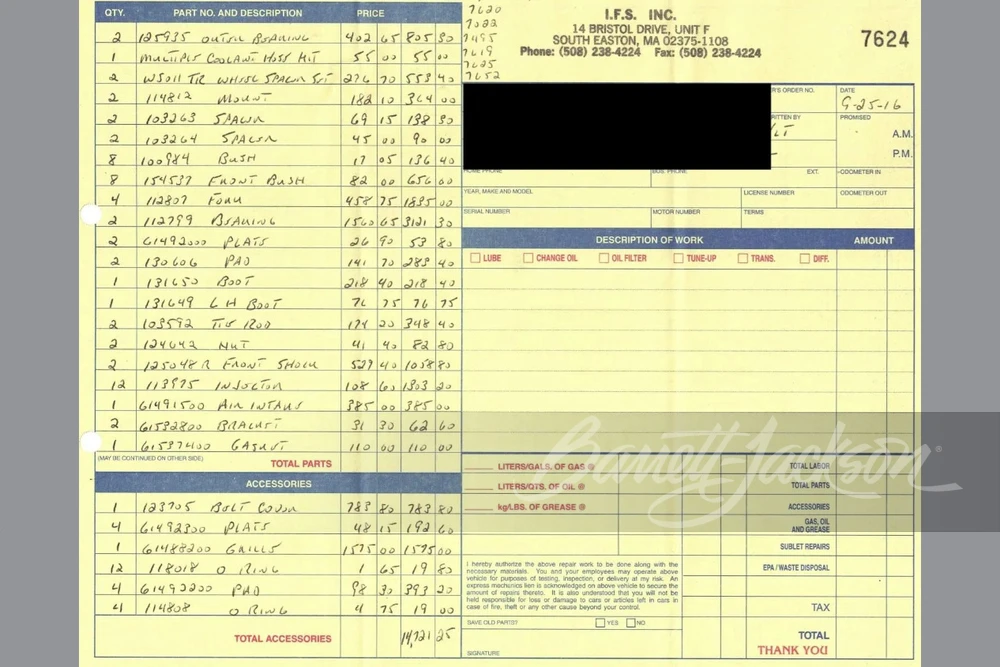 QTY. PART NO. AND DESCRIPTION PRICE
2 125935 OUTER BEARING 402 65 805 30
1 MULTIPLE COOLANT HOSE KIT 55 00 55 00
2 WS011 TIR WHEEL SPACER SET 276 70 553 40
2 114812 MOUNT 182 10 364 00
2 103263 SPACER 69 15 138 30
2 103264 SPACER 45 00 90 00
8 100984 BUSH 17 05 136 40
8 154537 FRONT BUSH 82 00 656 00
4 112807 FORK 458 75 1835 00
2 112799 BEARING 1560 65 3121 30
2 61492000 PLATE 26 90 53 80
2 130606 PAD 141 70 283 40
1 131650 BOOT 218 40 218 40
1 131649 LH BOOT 76 75 76 75
2 103592 TIE ROD 174 20 348 40
2 124642 NUT 41 40 82 80
2 125048 R FRONT SHOCK 529 40 1058 80
12 113975 INJECTOR 108 60 1303 20
1 61491500 AIR INTAKE 385 00 385 00
2 61532800 BRACKET 31 30 62 60
1 61537400 GASKET 110 00 110 00
(MAY BE CONTINUED ON OTHER SIDE)
TOTAL PARTS
ACCESSORIES
1 123705 BELT COVER 783 80 783 80
4 61492300 PLATE 48 15 192 60
1 61488200 GRILLE 1575 00 1575 00
12 118018 O RING 1 65 19 80
4 61492200 PAD 98 30 393 20
4 114808 O RING 4 75 19 00
TOTAL ACCESSORIES 14,721 25
7620
7022
7495
7619
7625
7652
I.F.S. INC.
14 BRISTOL DRIVE, UNIT F
SOUTH EASTON, MA 02375-1108
Phone: (508) 238-4224 Fax: (508) 238-4224
7624
'S ORDER NO.
DATE
9-25-16
RITTEN BY
PROMISED
A.M.
P.M.
HOME PHONE BUS. PHONE EXT. ODOMETER IN
YEAR, MAKE AND MODEL LICENSE NUMBER ODOMETER OUT
SERIAL NUMBER MOTOR NUMBER TERMS
DESCRIPTION OF WORK AMOUNT
LUBE CHANGE OIL OIL FILTER TUNE-UP TRANS. DIFF.
Barrett-Jackson
LITERS/GALS. OF GAS @ TOTAL LABOR
LITERS/QTS. OF OIL @ TOTAL PARTS
kg/LBS. OF GREASE @ ACCESSORIES
GAS, OIL AND GREASE
SUBLET REPAIRS
EPA / WASTE DISPOSAL
I hereby authorize the above repair work to be done along with the
necessary materials. You and your employees may operate above
vehicle for purposes of testing, inspection, or delivery at my risk. An
express mechanics lien is acknowledged on above vehicle to secure the
amount of repairs thereto. It is also understood that you will not be
held responsible for loss or damage to cars or articles left in cars in
case of fire, theft or any other cause beyond your control.
TAX
SAVE OLD PARTS? YES NO
TOTAL
THANK YOU
SIGNATURE